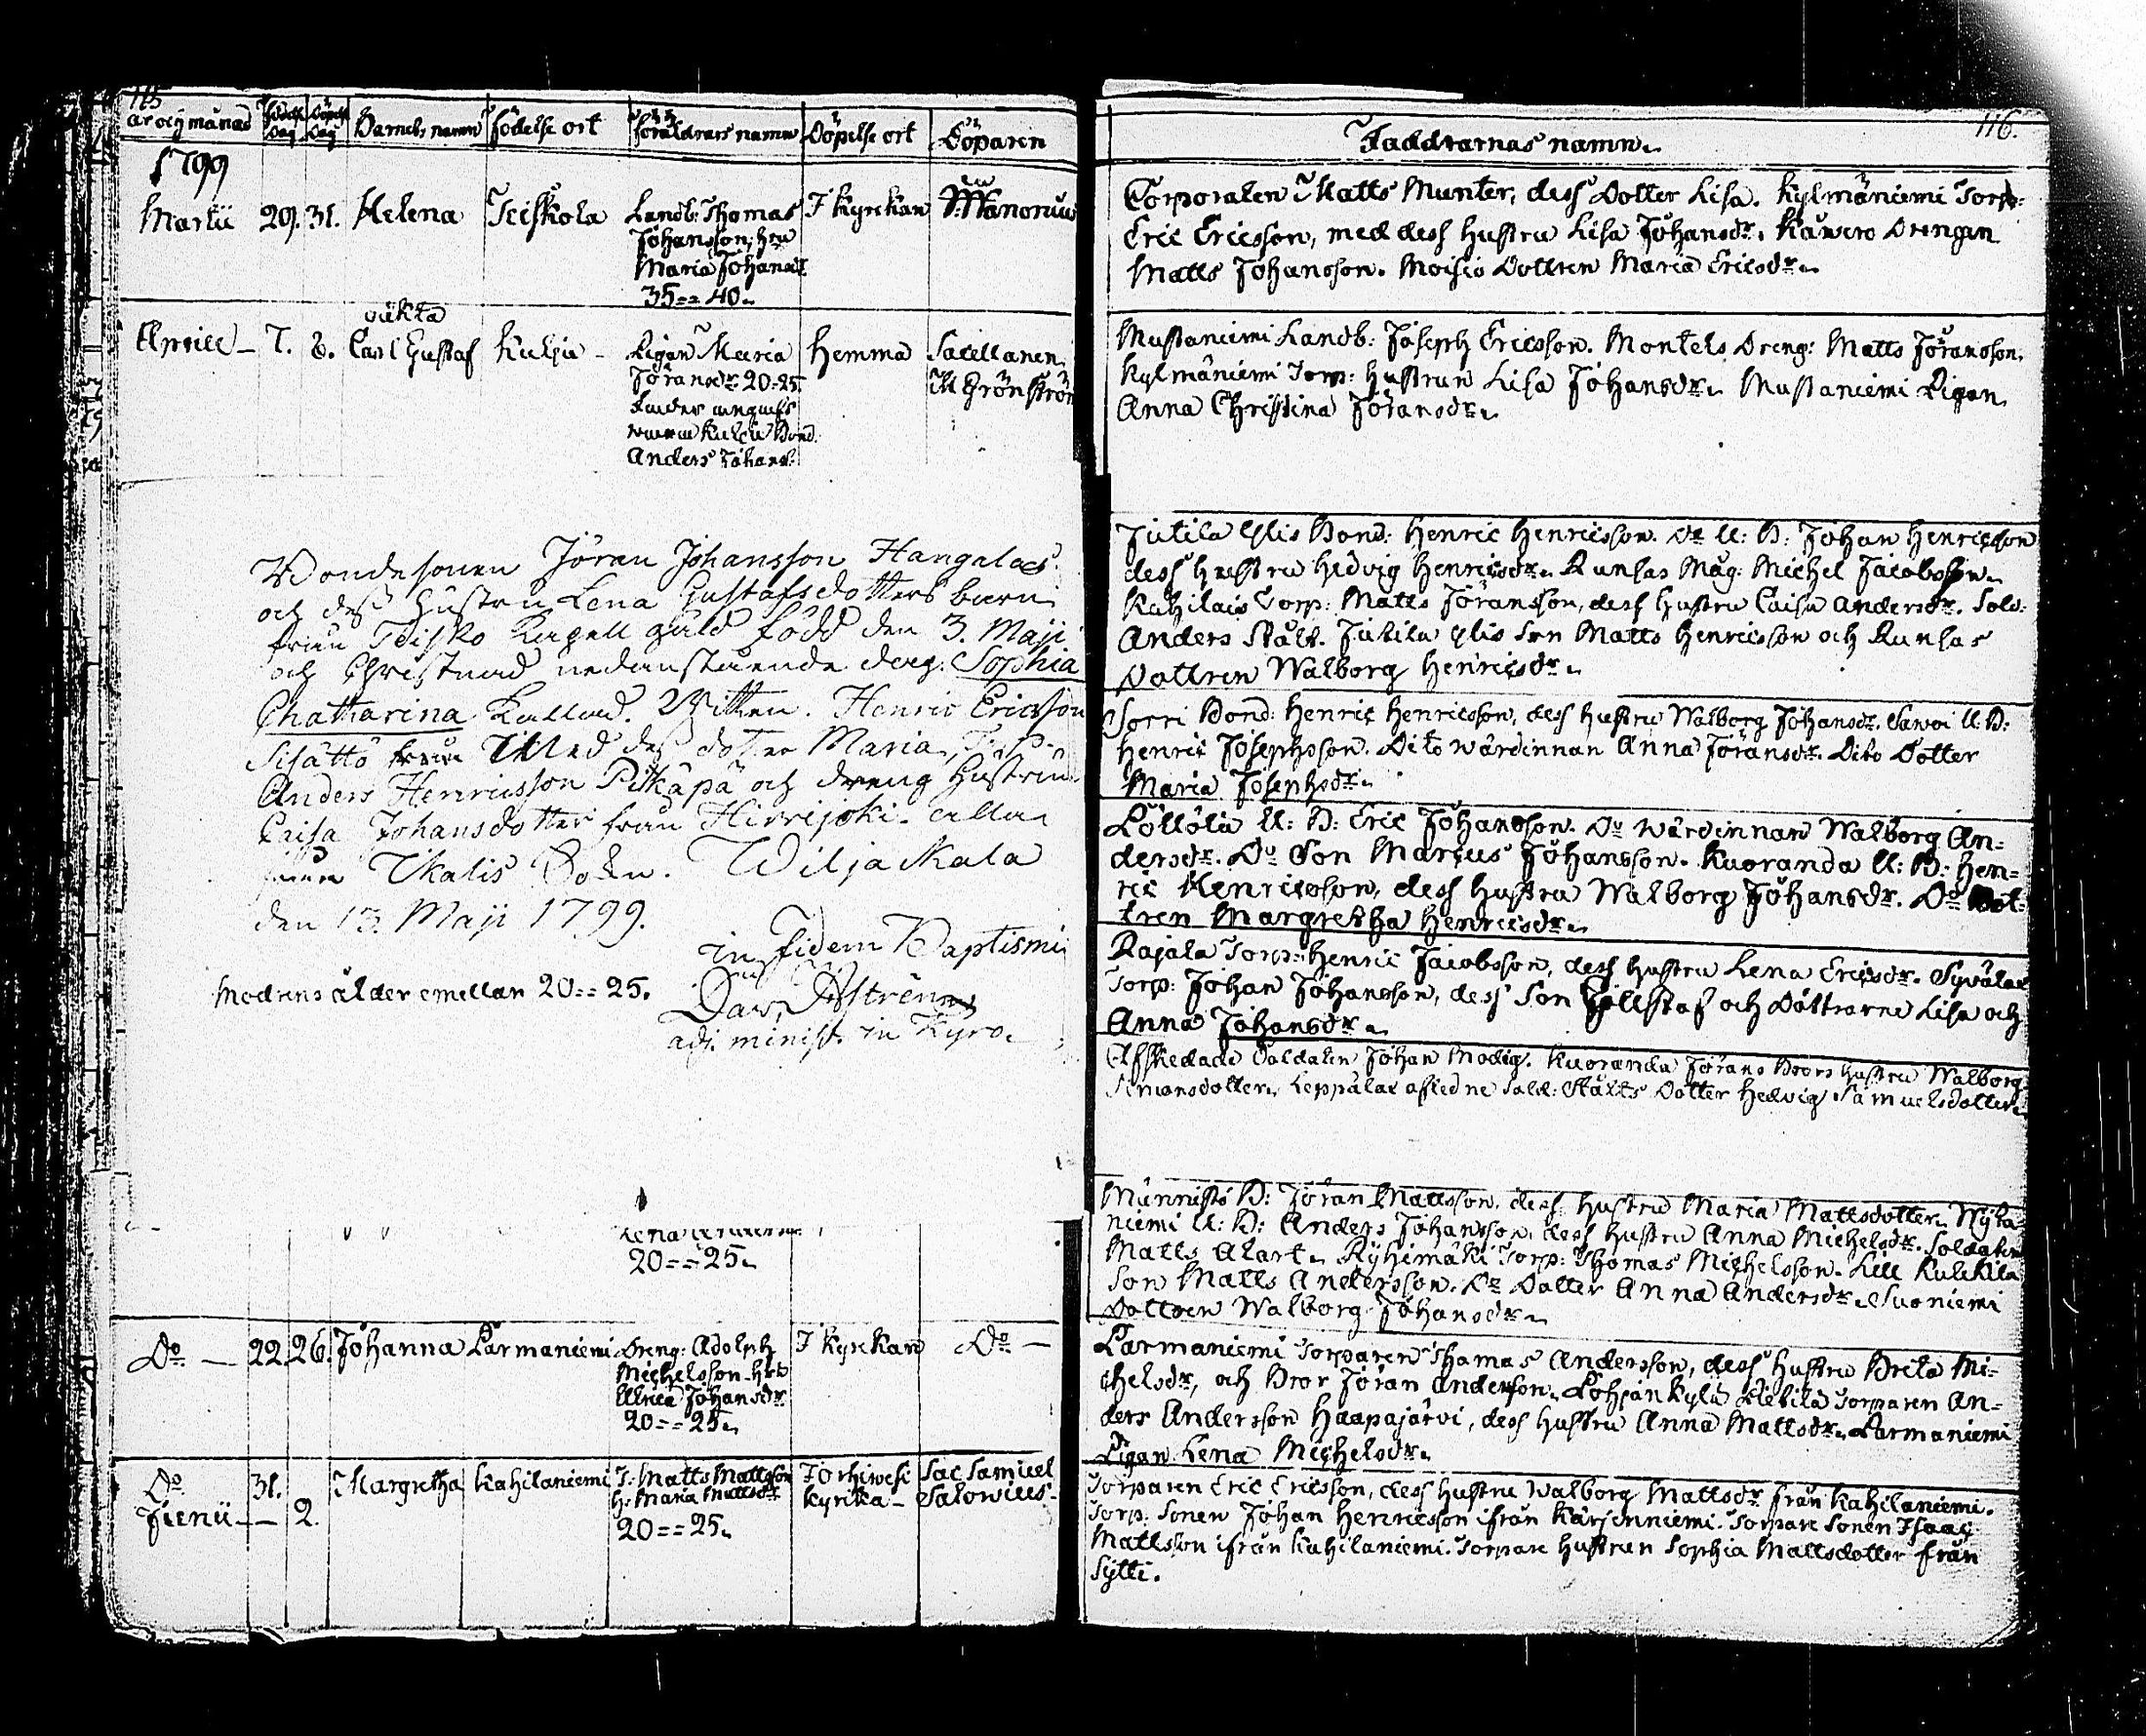 115
år och månad Födelse Dag Döpelse Dag Barnets namn födelse ort föräldrars namn Döpelse ort Döparen
1799
Martii 29. 31. Helena Teiskola Landb: Thomas I kyrckan
Johansson, hru
Maria Johansdr
35 == 40.
oäkta
Aprill 7. 8. Carl Gustaf Kulju Pigan Maria Hemma Sacellanen
Jöransdr 20=25 M Grönström
Bond.
Anders Johans:
Bondesonen Jöran Johansson Hangalas
och dess Hustru Lena Gustafsdotters barn
från Teisko Kapell gäld född den 3. Maji
och Christnad nedanstående dag. Sophia
Chatharina kallad. Witten. Henric Ericsson
Maria,
Anders Henricsson Pitkäpä och dreng Hustrun
Caisa Johansdotter från Hirvijoki alla
från Ikalis Sokn. Wiljakkala
den 13. Maji 1799.
in fidem Baptismi
Modrens ålder emellan 20==25. Dav.
adj. minist. in Kyro
20==25.
Do 22. 26. Johanna Parmaniemi Dreng: Adolph I kyrckan Do
Michelsson hru
Ulrica Johansdr
20==25.
Do 31. Margretha Kahilaniemi T: Matts Mattsson Torhiwesi Sac Samuel
Junii 2. H: Maria Mattsdr kyrcka Salowius
20==25.
116.
Faddrarnas namn
Corporalen Matts Munter, dess Dotter Lisa. Kylmäniemi Torp:
Eric Ericsson, med dess hustru Lisa Johansdr. Kauvero Drengen
Matts Johansson. Moisio Dottren Maria Ericsdr.
Mustaniemi Landb: Joseph Ericsson. Montels Dreng: Matts Jöransson.
Kylmäniemi Torp: hustrun Lisa Johansdr. Mustaniemi Pigan
Anna Christina Jöransdr.
Jutila Ylis Bond: Henric Henricsson. Do U: B: Johan Henricsson
dess hustru Hedvig Henricsdr. Runsas Måg: Michel Jacobsson.
Kahilais Torp: Matts Jöransson, dess hustru Caisa Andersdr. Sold:
Anders Stålt. Jutila Ylis Son Matts Henricsson och Runsas
Dottren Walborg Henricsdr.
Sorri Bond: Henric Henricsson, dess hustru Walborg Johansdr. Sawoi U: B:
Henric Josephsson. Dito wärdinnan Anna Jöransdr. Dito Dotter
Maria Josephsdr.
Löllölä U: B: Eric Johansson. Do wärdinnan Walborg An=
dersdr. Do Son Marcus Johansson. Kuoranda U: B: Hen=
ric Henricsson, dess hustru Walborg Johansdr. Do Dot=
tren Margretha Henricsdr.
Rajala Torp: Henric Jacobsson, dess hustru Lena Ericsdr. Sypälax
Torp: Johan Johansson, dess Son Gustaf och Döttrarne Lisa och
Anna Johansdr.
Afskedade Soldaten Johan Modig. Kuoranda Jörans Brors hustru Walborg
Simonsdotter. Leppälax afledne Sold: Stålts Dotter Hedvig Samuelsdotter.
Männistö B: Jöran Mattsson, dess hustru Maria Mattsdotter. Wyka=
niemi U: B: Anders Johansson, dess hustru Anna Michelsdr. Soldaten
Matts Alart. Ryhimäki Torp: Thomas Michelsson. Lill Kulckila
Son Matts Andersson. Do Dotter Anna Andersdr. Suoniemi
Dottren Walborg Johansdr.
Parmaniemi Torparen Thomas Andersson, dess hustru Breta Mi=
chelsdr, och Bror Jöran Andersson. Pohjankylä Torparen An=
ders Andersson Haapajärvi, dess hustru Anna Mattsdr. Parmaniemi
Pigan Lena Michelsdr.
Torparen Eric Ericsson, dess hustru Walborg Mattsdr från Kahilaniemi.
Torp: Sonen Johan Henricsson ifrån Kärjenniemi. Torpare Sonen Isaac
Mattsson ifrån Kahilaniemi. Torpare hustrun Sophia Mattsdotter från
Sytti.